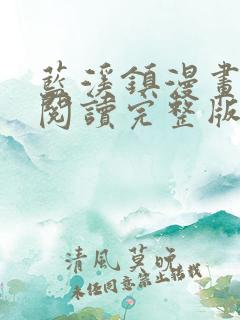 藍溪鎮漫畫
閱讀完整版
清風莫晚
未經同意禁止轉載